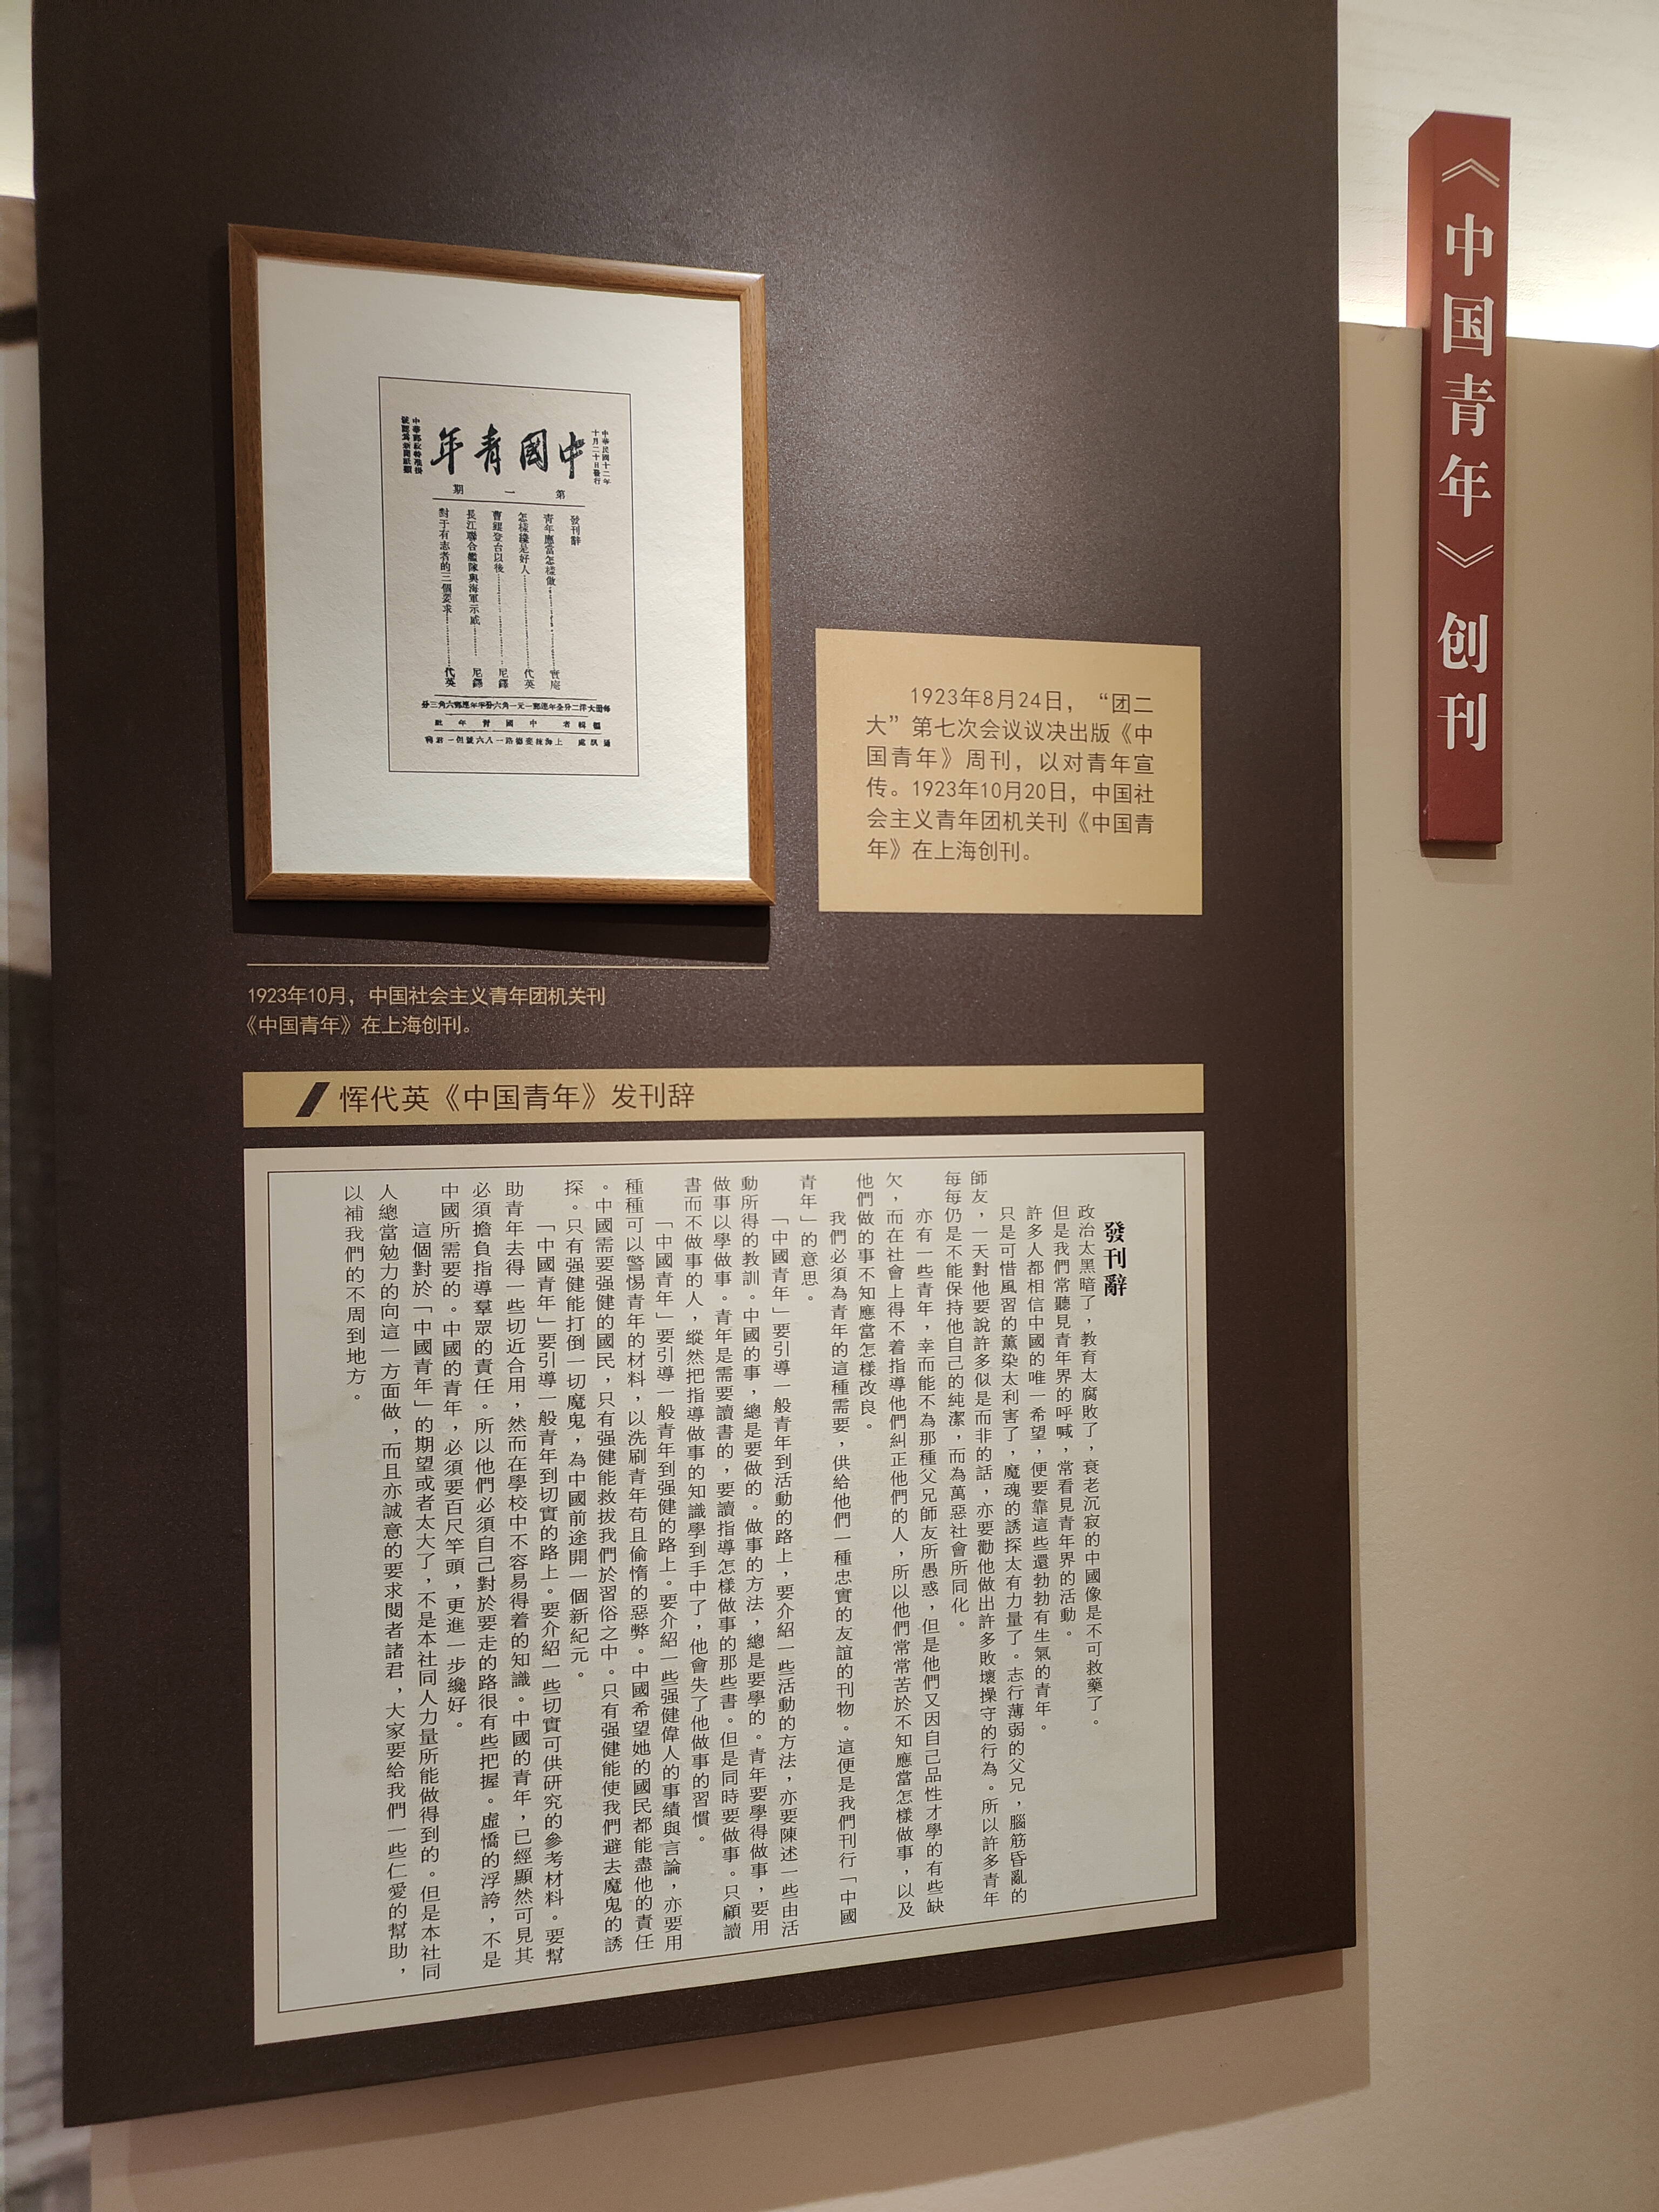 《中国青年》创刊
中華民國十二年
十月二十日發行
中國青年
中華郵政特准掛
號認爲新聞紙類
第一期
發刊辭
青年應當怎樣做 實庵
怎樣纔是好人 代英
曹錕登台以後 尼鐸
長江聯合艦隊與海軍示威 尼鐸
對于有志者的三個要求 代英
編輯者 中國青年社
1923年8月24日，“团二
大”第七次会议议决出版《中
国青年》周刊，以对青年宣
传。1923年10月20日，中国社
会主义青年团机关刊《中国青
年》在上海创刊。
1923年10月，中国社会主义青年团机关刊
《中国青年》在上海创刊。
恽代英《中国青年》发刊辞
發刊辭
政治太黑暗了，教育太腐敗了，衰老沉寂的中國像是不可救藥了。
但是我們常聽見青年界的呼喊，常看見青年界的活動。
許多人都相信中國的唯一希望，便要靠這些還勃勃有生氣的青年。
只是可惜風習的薰染太利害了，魔魂的誘探太有力量了。志行薄弱的父兄，腦筋昏亂的
師友，一天對他要說許多似是而非的話，亦要勸他做出許多敗壞操守的行為。所以許多青年
每每仍是不能保持他自己的純潔，而為萬惡社會所同化。
亦有一些青年，幸而能不為那種父兄師友所愚惑，但是他們又因自己品性才學的有些缺
欠，而在社會上得不着指導他們糾正他們的人，所以他們常常苦於不知應當怎樣做事，以及
他們做的事不知應當怎樣改良。
我們必須為青年的這種需要，供給他們一種忠實的友誼的刊物。這便是我們刊行「中國
青年」的意思。
「中國青年」要引導一般青年到活動的路上，要介紹一些活動的方法，亦要陳述一些由活
動所得的教訓。中國的事，總是要做的。做事的方法，總是要學的。青年要學得做事，要用
做事以學做事。青年是需要讀書的，要讀指導怎樣做事的那些書。但是同時要做事。只顧讀
書而不做事的人，縱然把指導做事的知識學到手中了，他會失了他做事的習慣。
「中國青年」要引導一般青年到强健的路上。要介紹一些强健偉人的事績與言論，亦要用
種種可以警惕青年的材料，以洗刷青年苟且偷惰的惡弊。中國希望她的國民都能盡他的責任
。中國需要强健的國民，只有强健能救拔我們於習俗之中。只有强健能使我們避去魔鬼的誘
探。只有强健能打倒一切魔鬼，為中國前途開一個新紀元。
「中國青年」要引導一般青年到切實的路上。要介紹一些切實可供研究的參考材料。要幫
助青年去得一些切近合用，然而在學校中不容易得着的知識。中國的青年，已經顯然可見其
必須擔負指導羣眾的責任。所以他們必須自己對於要走的路很有些把握。虛憍的浮誇，不是
中國所需要的。中國的青年，必須要百尺竿頭，更進一步纔好。
這個對於「中國青年」的期望或者太大了，不是本社同人力量所能做得到的。但是本社同
人總當勉力的向這一方面做，而且亦誠意的要求閱者諸君，大家要給我們一些仁愛的幫助，
以補我們的不周到地方。